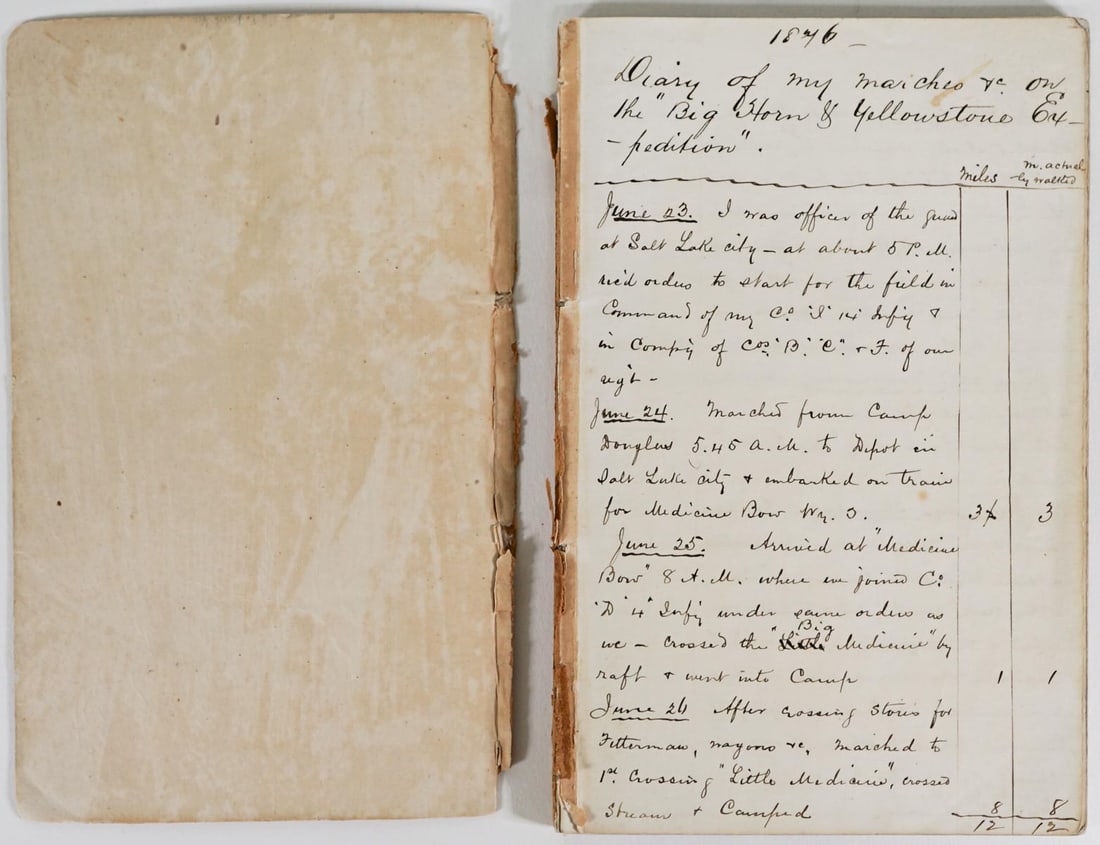 1876 –
Diary of my marches &c on
the "Big Horn & Yellowstone Ex–
– pedition".
miles
m. actual
ly walked
June 23. I was officer of the guard
at Salt Lake city – at about 5 P.M.
rec'd orders to start for the field in
Command of my Co. "I" 14 Inf'y &
in Comp'y of Cos. "B", "C", & F. of our
reg't –
June 24. Marched from Camp
Douglass 5.45 A.M. to Depot in
Salt Lake city & embarked on train
for Medicine Bow Wy. 3. 3 3
June 25. Arrived at "Medicine
Bow" 8 A.M. where we joined Co.
"D" 4" Inf'y under same orders as
Big
we – crossed the "Little Medicine" by
raft & went into Camp 1 1
June 26 After crossing stores for
Fetterman, wagons &c, marched to
1st. Crossing "Little Medicine", crossed
Stream & Camped 8 8
12 12